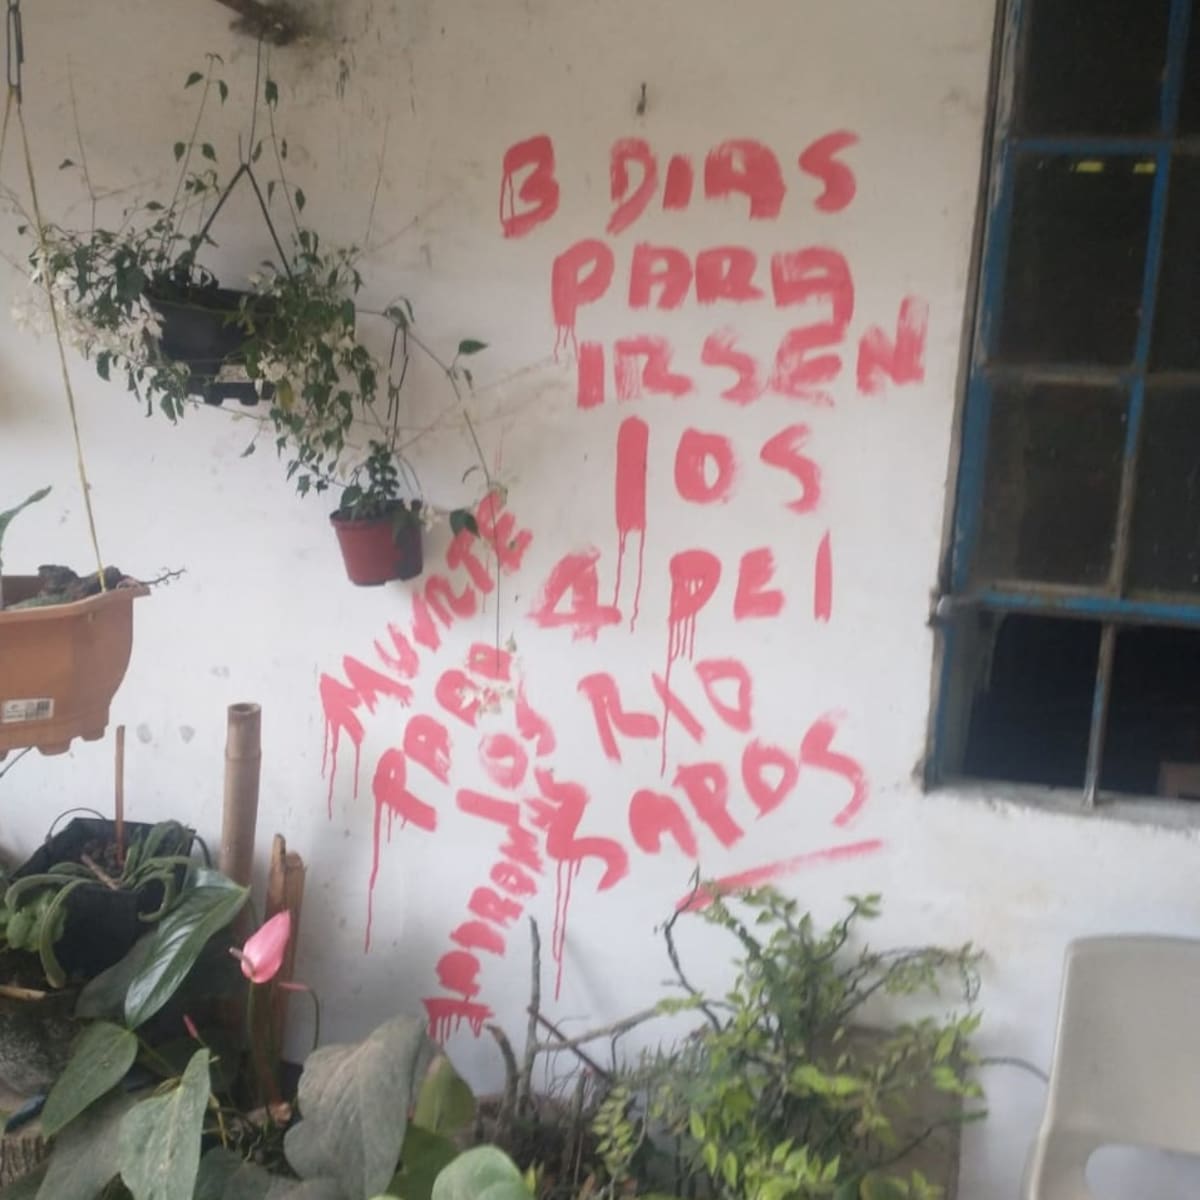 3 DIAS
PARA
IRSEN
los
4 DEl
RIO
SAPOS
MUVRTE
PARA
los